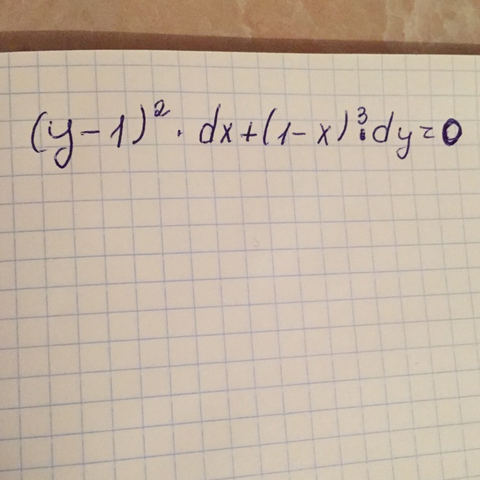 (y-1)² · dx+(1-x)³·dy=0